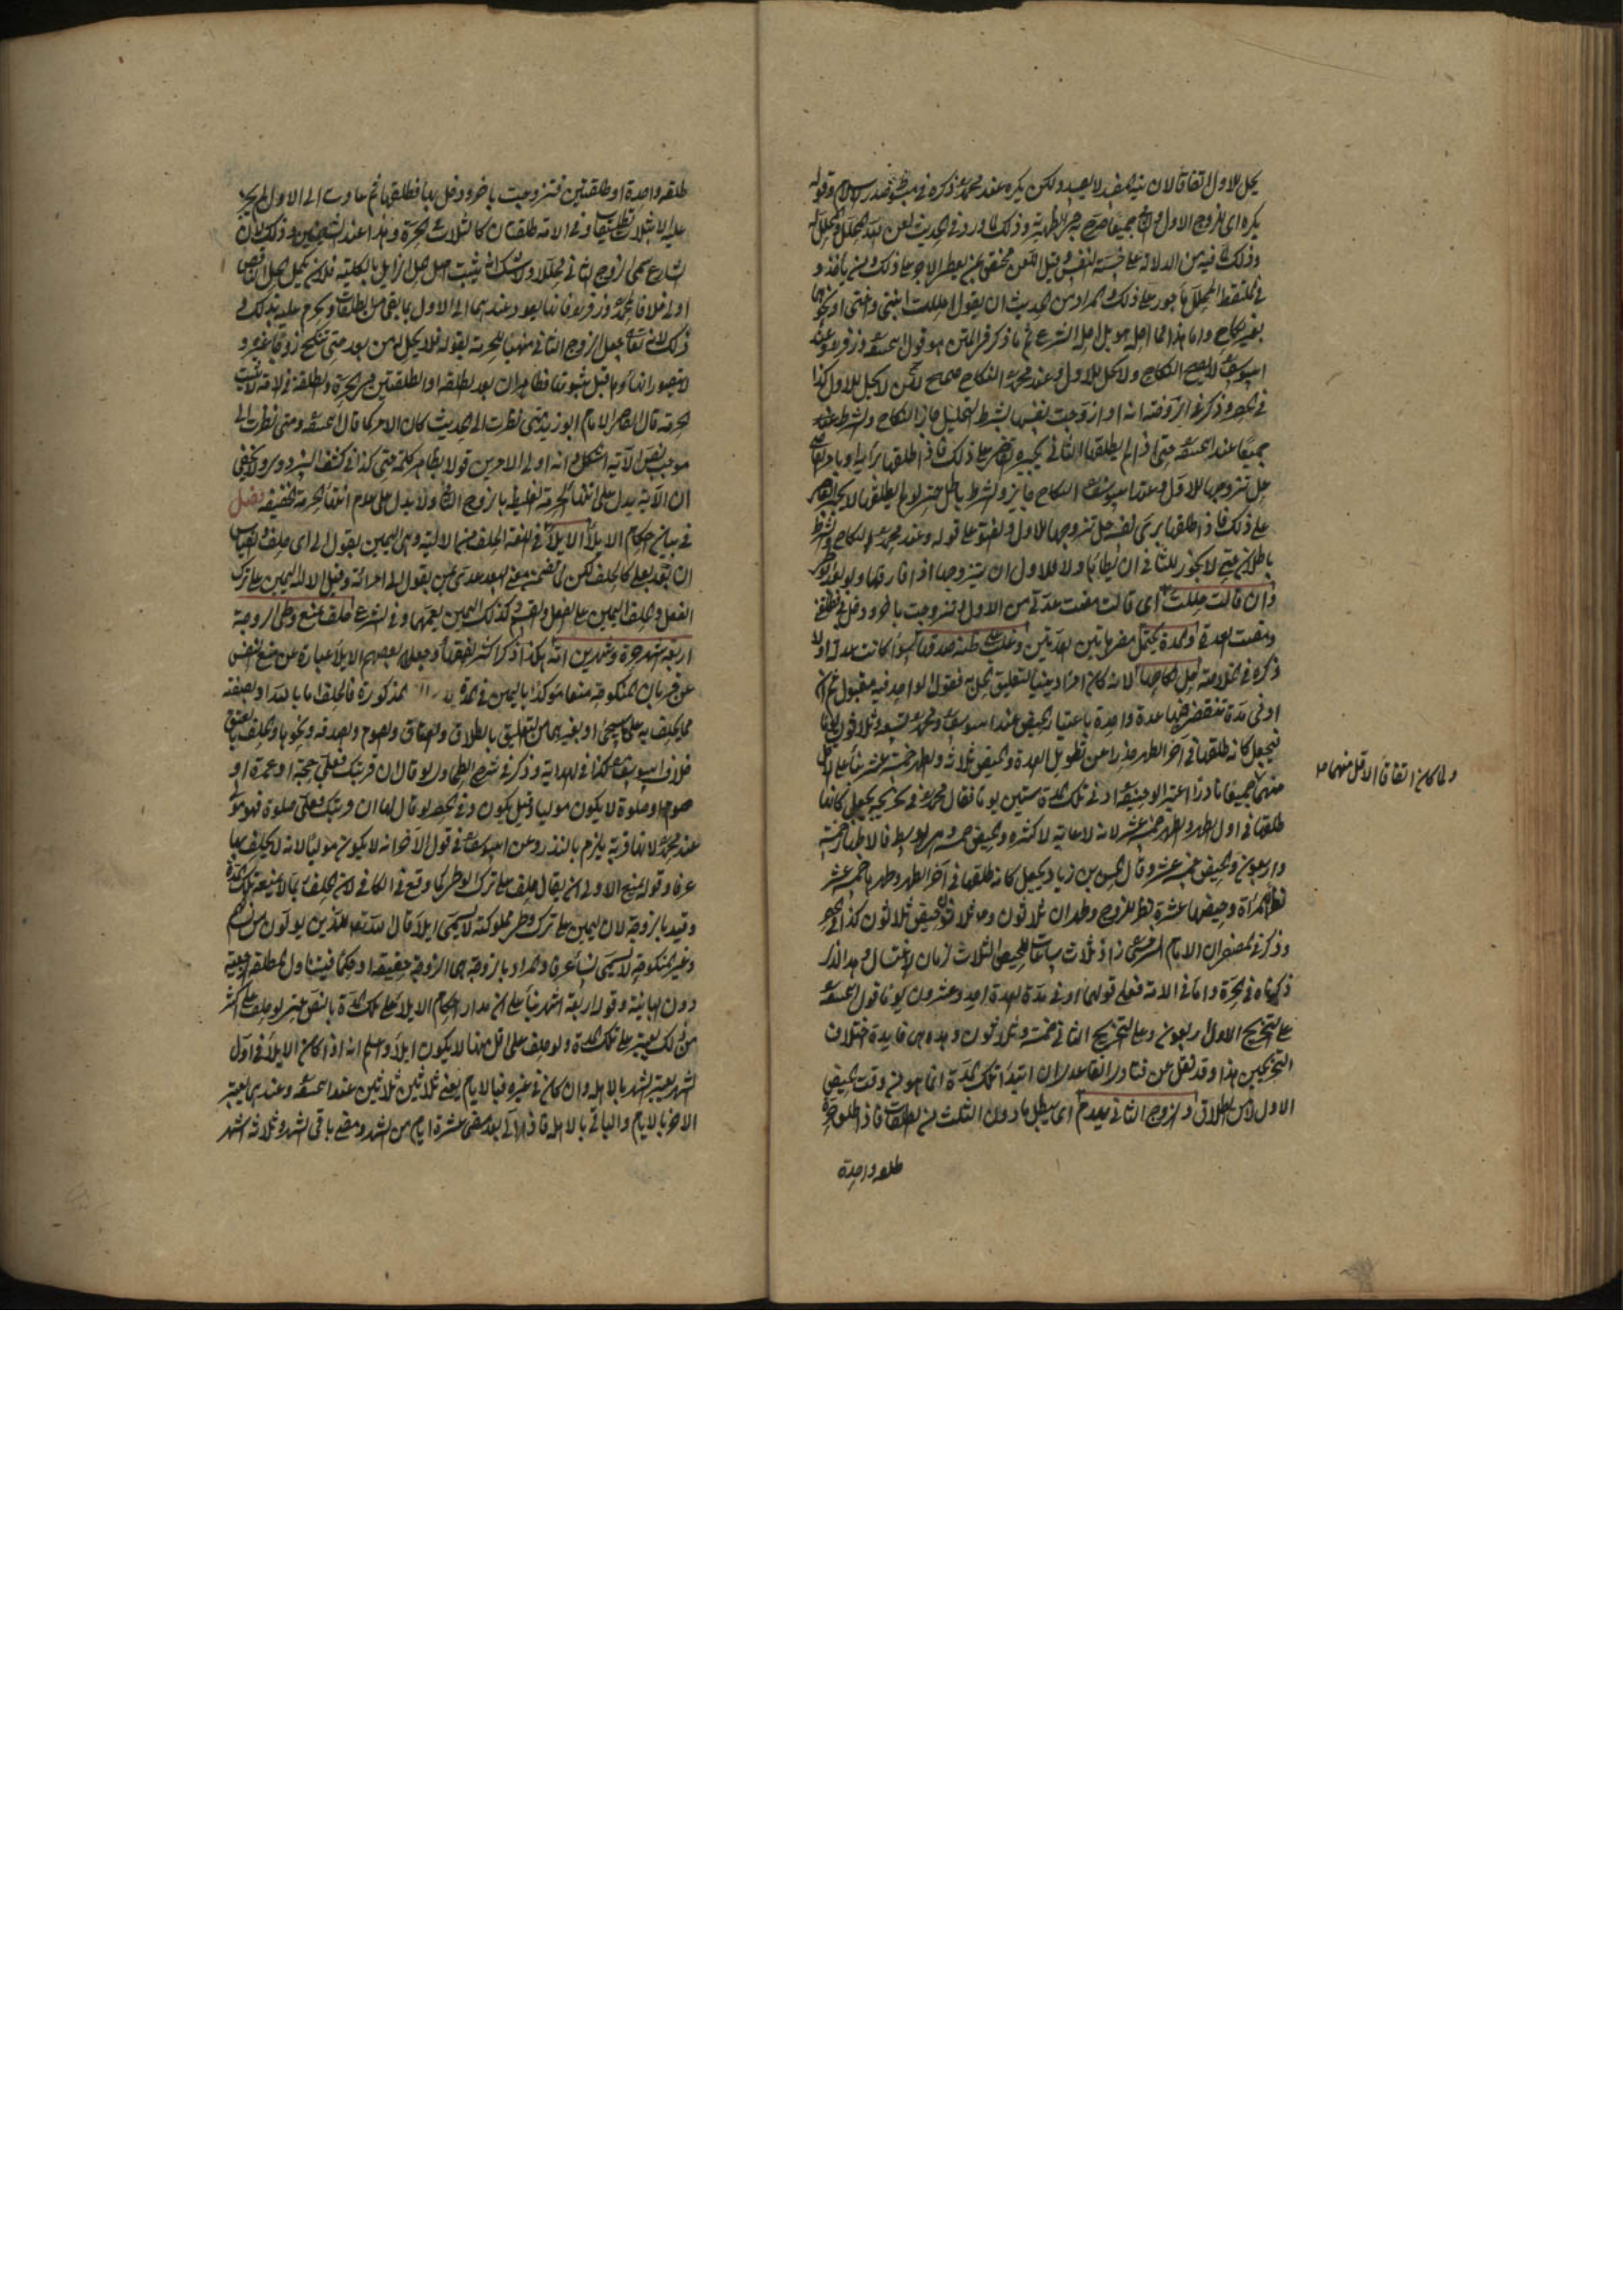 يحل للاول اتفاقا لان نية المفيد لا يفيد ولكن يكره عند محمد ذكره في مبسوط صدر الاسلام وقوله
يكره اى للزوج الاول والثاني جميعا صرح به في الظهيرية وذلك لما ورد في الحديث لعن الله المحلل والمحلل له
وذلك لما فيه من الدلالة على خسة النفس وقيل اللعن مختص بمن يعطى الاجر على ذلك ومن ياخذ و
في الملتقط المحلل مأجور على ذلك والمراد من الحديث ان يقول احللت ابنتي واختي او نحوهما
بغير نكاح واما هذا فما احله هو بل احله الشرع ثم ما ذكر في المتن هو قول وزفر وعند
لا يصح النكاح ولا يحل للاول وعند محمد النكاح صحيح لكن لا يحل للاول كذا
في وذكر في الروضة انه لو زوجت نفسها بشرط التحليل جاز النكاح والشرط
جميعا عند حتى اذا لم يطلقها الثاني يجبره القاضي على ذلك فاذا طلقها برأيه او بامر القاضي
حل تزوجها للاول وعند النكاح جايز والشرط باطل حتى لو لم يطلقها لا يجبره القاضي
على ذلك فاذا طلقها برأى نفسه حل تزوجها للاول والفتوى على قوله وعند محمد النكاح والشرط
باطلان حتى لا يجوز للثاني ان يطأها ولا للاول ان يتزوجها اذا فارقها ولو بعد الوطئ
وان قالت حللت اى قالت مضت عدتي من الاول وتزوجت باخر ودخل بي وطلقني
ومضت العدة والمدة يحتمل مضى هاتين العدتين وغلب على ظنه صدقها سواء كانت عدلة او لا
ذكره في الخلاصة حل نكاحها لانه كان امرا دينيا لتعلق الحل به فقول الواحد فيه مقبول ثم ان
ادنى مدة تنقضي فيها عدة واحدة باعتبار الحيض عند ابى يوسف ومحمد تسعة وثلاثون يوما
فيجعل كانه طلقها في آخر الطهر حذرا عن تطويل العدة والحيض ثلاثة والطهر خمسة عشر بناء على الاقل
منهما جميعا نادرا اعتبر ابو حنيفة ادنى تلك المدة ستين يوما فقال محمد في تخريجه يجعل كانه
طلقها في اول الطهر والطهر خمسة عشر لانه لا غاية لاكثره والحيض خمسة هو الوسط فالاطهار خمسة
واربعون والحيض خمسة عشر وقال الحسن بن زياد يجعل كانه طلقها في آخر الطهر وطهرها خمسة عشر
نظرا للمرأة وحيضها عشرة نظرا للزوج وطهران ثلاثون وثلاث حيض ثلاثون كذا في
وذكر في المضمرات ان الامام السرخسي زاد ثلاث ساعات للحيض الثلاث زمان الاغتسال وهذا الذي
ذكرناه في الحرة واما في الامة فعلى قولهما ادنى مدة العدة احد وعشرون يوما وفي قول
على التخريج الاول اربعون وعلى التخريج الثاني خمسة وثلاثون وهذه هي فايدة اختلاف
التخريجين هذا وقد نقل عن فتاوى القاعدي ان ابتداء تلك المدة انما هو من وقت الحيض
الاول لا من الطلاق والزوج الثاني يهدم اى يبطل ما دون الثلث من الطلقات فاذا طلق حرة
طلقة واحدة
ولما كان اتفاقا الاقل منهما
طلقة واحدة او طلقتين فتزوجت باخر ودخل بها فطلقها ثم عادت الى الاول لم يحرم
عليه الا بثلاث تطليقات وفي الامة طلقتان كالثلاث في الحرة وهذا عند الشيخين وذلك لان
الشارع سمى الزوج الثاني محللا ولا شك انه يثبت اصل الحل الزايل بالكلية فلان يكمل الحل الناقص
اولى خلافا لمحمد وزفر فانها يعود عندهما الى الاول بما بقى من الطلقات ويحرم عليه بذلك و
ذلك لانه تعالى جعل الزوج الثاني منهيا للحرمة بقوله فلا تحل له من بعد حتى تنكح زوجا غيره و
لا يتصور انتهاء الحرمة قبل ثبوتها فظاهر ان بعد الطلقة او الطلقتين في الحرة والطلقة في الامة لا يثبت
الحرمة قال القاضي الامام ابو زيد متى نظرت الى الحديث كان الامر كما قال ومتى نظرت الى
موجب نص الآية اشكل وانه اولى الامرين قولا بظاهر كلمة حتى كذا في كشف البزدوى ولا يخفى
ان الآية يدل على انتهاء الحرمة الغليظة بالزوج الثاني ولا يدل على عدم انتهاء الحرمة الخفيفة فصل
في بيان احكام الايلاء الايلاء في اللغة الحلف من الالية وهي اليمين يقول آلى اى حلف والقياس
ان يتعدى بعلى كالحلف لكن لما ضمن معنى البعد عدى بمن يقول آلى من امرأته وقيل الالية اليمين على ترك
الفعل والحلف اليمين على الفعل والقسم كذلك واليمين يعمها وفي الشرع حلف يمنع وطى الزوجة
اربعة اشهر حرة وشهرين امة هكذا ذكر اكثر الفقهاء وجعل بعضهم الايلاء عبارة عن منع النفس
عن قربان المنكوحة منعا مؤكدا باليمين في المدة المذكورة فالحلف اما بالله او بصفته
مما يحلف به على ما سيجئ او بغيرهما من التعليق بالطلاق والعتاق والصوم والصدقة ونحوها والحلف بالعتق
خلاف ابى يوسف كذا في الهداية وذكر في شرح الطحاوى لو قال ان قربتك فعلى حجة او عمرة او
صوم او صلوة لا يكون موليا وقيل يكون وفي لو قال لها ان قربتك فعلى صلوة فهو مول
عند محمد لانها قربة يلزم بالنذر وعن ابى يوسف في قول الآخر انه لا يكون موليا لانه لا يحلف بها
عرفا وقوله يمنع الاولى ان يقال حلف على ترك الوطئ كما وقع في الكافي لان الحلف ربما لا يمنعه تلك المدة
وقيد بالزوجة لان اليمين على ترك وطئ مملوكته لا يسمى ايلاء قال الله تعالى للذين يولون من نسائهم
وغير المنكوحة لا يسمى نساء عرفا والمراد بالزوجة هى الزوجة حقيقة او حكما فيتناول المطلقة الرجعية
دون البائنة وقوله اربعة اشهر بناء على ان مدار احكام الايلاء على تلك المدة بالنص حتى لو حلف على اكثر
من ذلك يعتبر على تلك المدة ولو حلف على اقل منها لا يكون ايلاء واعلم انه اذا كان الايلاء في اول
الشهر يعتبر الشهر بالاهلة وان كان في غيره فبالايام يعنى ثلاثين ثلاثين عند وعندهما يعتبر
الاخر بالايام والباقي بالاهلة فاذا آلى بعد مضى عشرة ايام من الشهر ومضى باقى الشهر وثلاثة اشهر